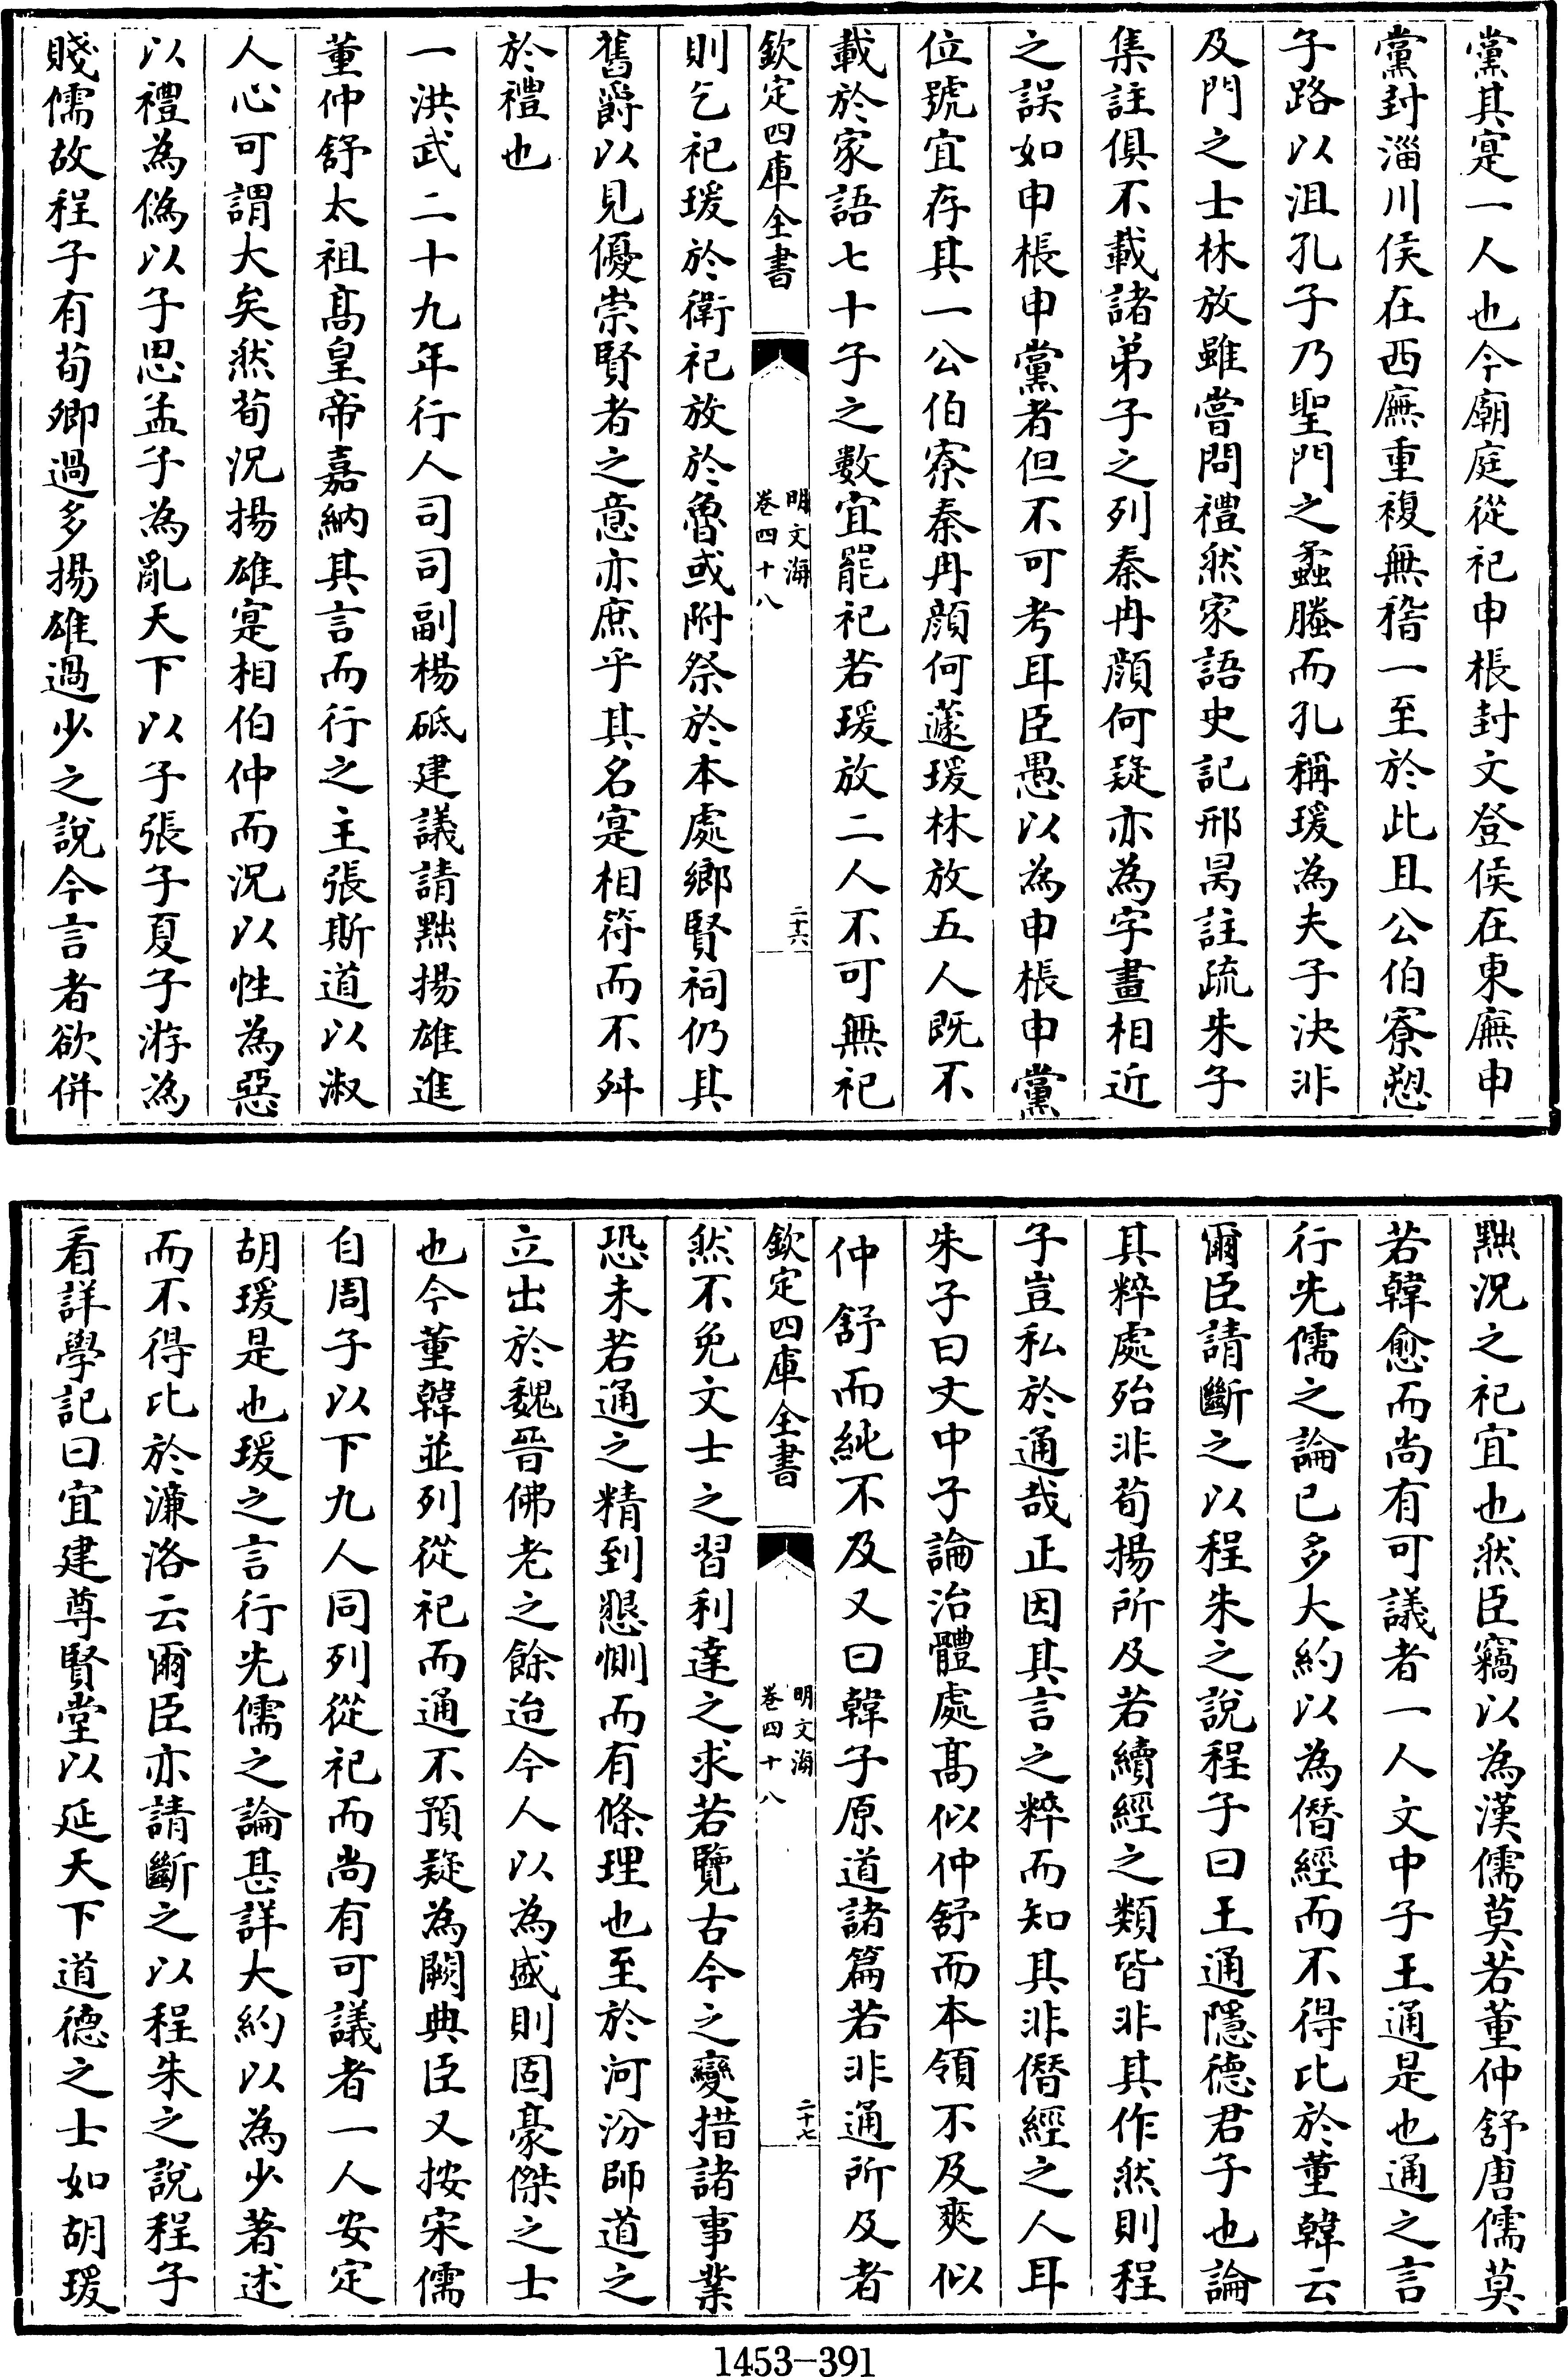 黨其寔一人也今廟庭從祀申棖封文登侯在東廡申
黨封淄川侯在西廡重複無稽一至於此且公伯寮愬
子路以沮孔子乃聖門之蟊螣而孔稱瑗為夫子決非
及門之士林放雖嘗問禮然家語史記邢昺註疏朱子
集註俱不載諸弟子之列秦冉顔何疑亦為字畫相近
之誤如申棖申黨者但不可考耳臣愚以為申棖申黨
位號宜存其一公伯寮秦冉顔何蘧瑗林放五人既不
載於家語七十子之數宜罷祀若瑗放二人不可無祀
欽定四庫全書
明文海
卷四十八
二十六
則乞祀瑗於衛祀放於魯或附祭於本處鄉賢祠仍其
舊爵以見優崇賢者之意亦庶乎其名寔相符而不舛
於禮也
一洪武二十九年行人司司副楊砥建議請黜揚雄進
董仲舒太祖髙皇帝嘉納其言而行之主張斯道以淑
人心可謂大矣然荀況揚雄寔相伯仲而況以性為惡
以禮為偽以子思孟子為亂天下以子張子夏子游為
賤儒故程子有荀卿過多揚雄過少之說今言者欲併
黜況之祀宜也然臣竊以為漢儒莫若董仲舒唐儒莫
若韓愈而尚有可議者一人文中子王通是也通之言
行先儒之論已多大約以為僭經而不得比於董韓云
爾臣請斷之以程朱之說程子曰王通隱德君子也論
其粹處殆非荀揚所及若續經之類皆非其作然則程
子豈私於通哉正因其言之粹而知其非僭經之人耳
朱子曰文中子論治體處髙似仲舒而本領不及爽似
仲舒而純不及又曰韓子原道諸篇若非通所及者
欽定四庫全書
明文海
卷四十八
二十七
然不免文士之習利達之求若覽古今之變措諸事業
恐未若通之精到懇惻而有條理也至於河汾師道之
立出於魏晉佛老之餘迨今人以為盛則固豪傑之士
也今董韓並列從祀而通不預疑為闕典臣又按宋儒
自周子以下九人同列從祀而尚有可議者一人安定
胡瑗是也瑗之言行先儒之論甚詳大約以為少著述
而不得比於濂洛云爾臣亦請斷之以程朱之說程子
看詳學記曰宜建尊賢堂以延天下道德之士如胡瑗
1453—391